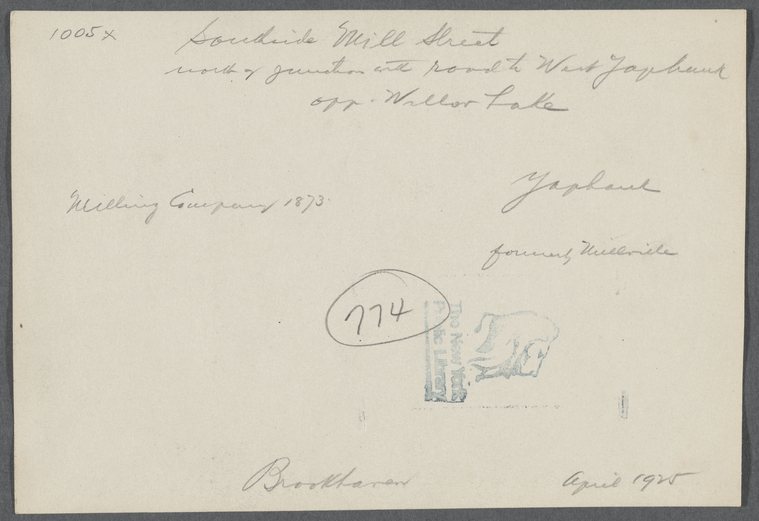 1005x
Southside Mill Street
north of junction with road to West Yaphank
opp. Willow Lake
Yaphank
Milling Company 1873.
formerly Millville
774
The New York
Public Library
Brookhaven
April 1925